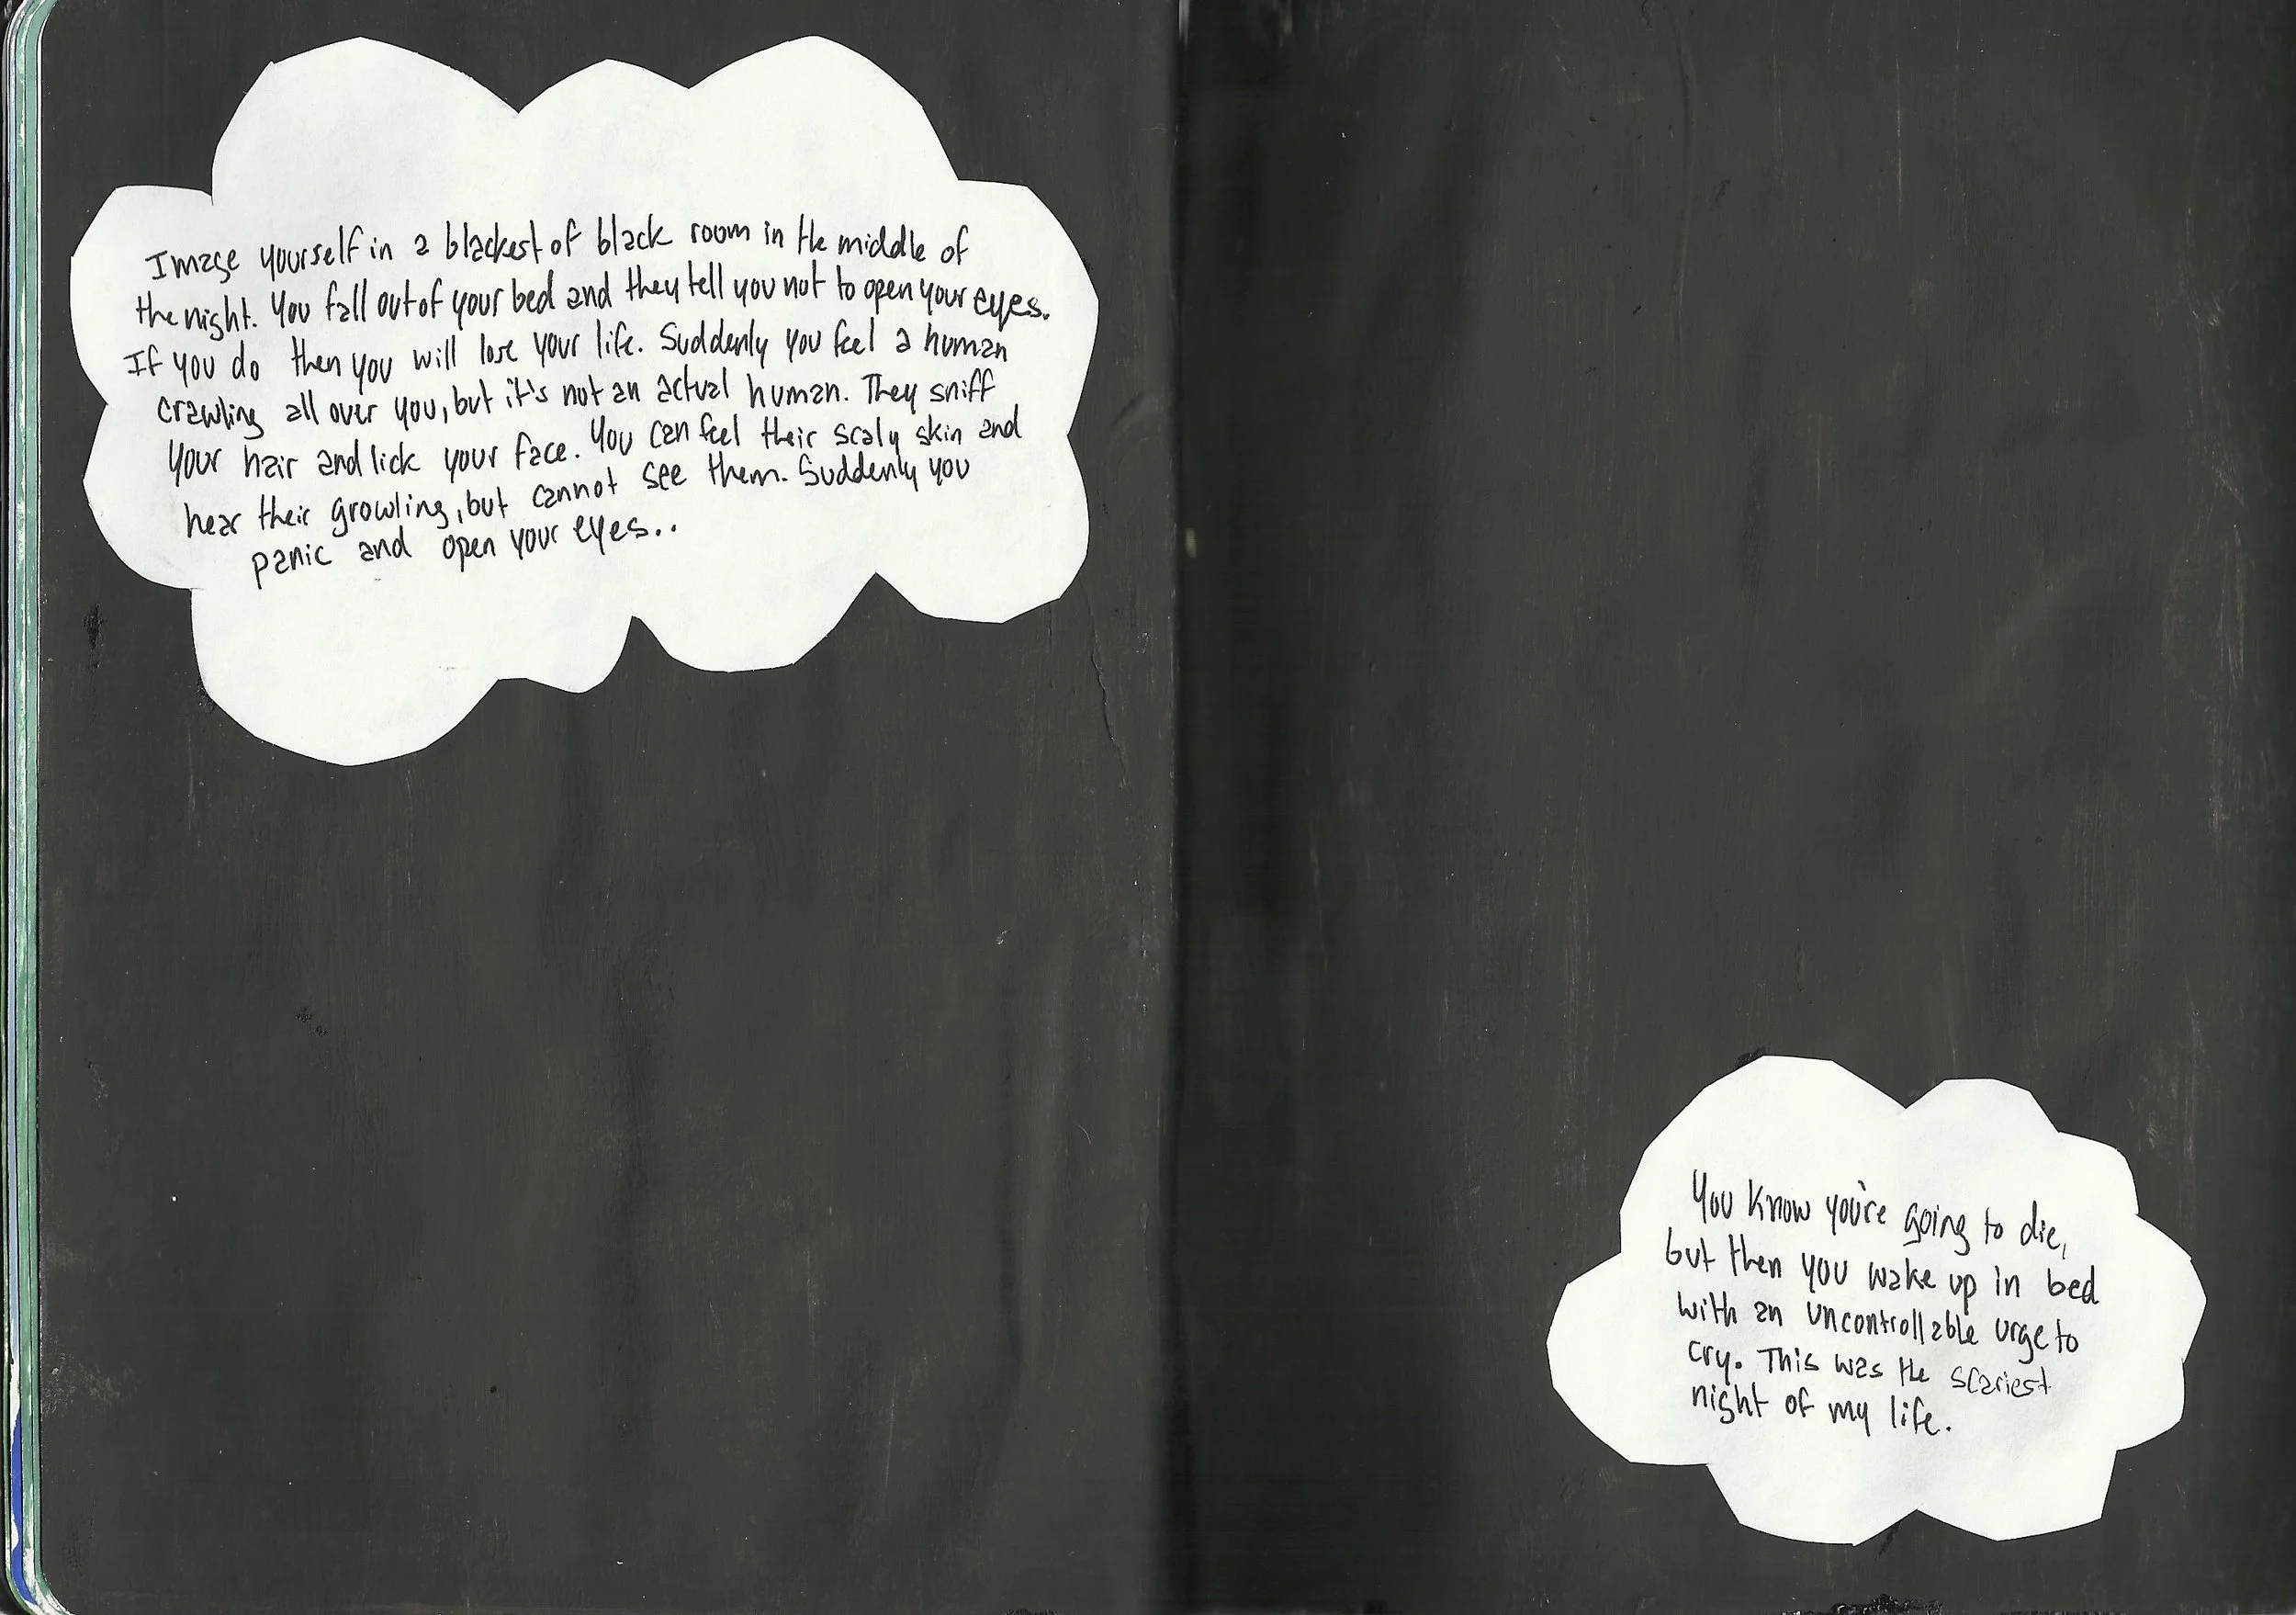 Image yourself in a blackest of black room in the middle of
the night. You fall out of your bed and they tell you not to open your eyes.
If you do then you will lose your life. Suddenly you feel a human
crawling all over you, but it's not an actual human. They sniff
your hair and lick your face. You can feel their scaly skin and
hear their growling, but cannot see them. Suddenly you
panic and open your eyes..
You know you're going to die,
but then you wake up in bed
with an uncontrollable urge to
cry. This was the scariest
night of my life.